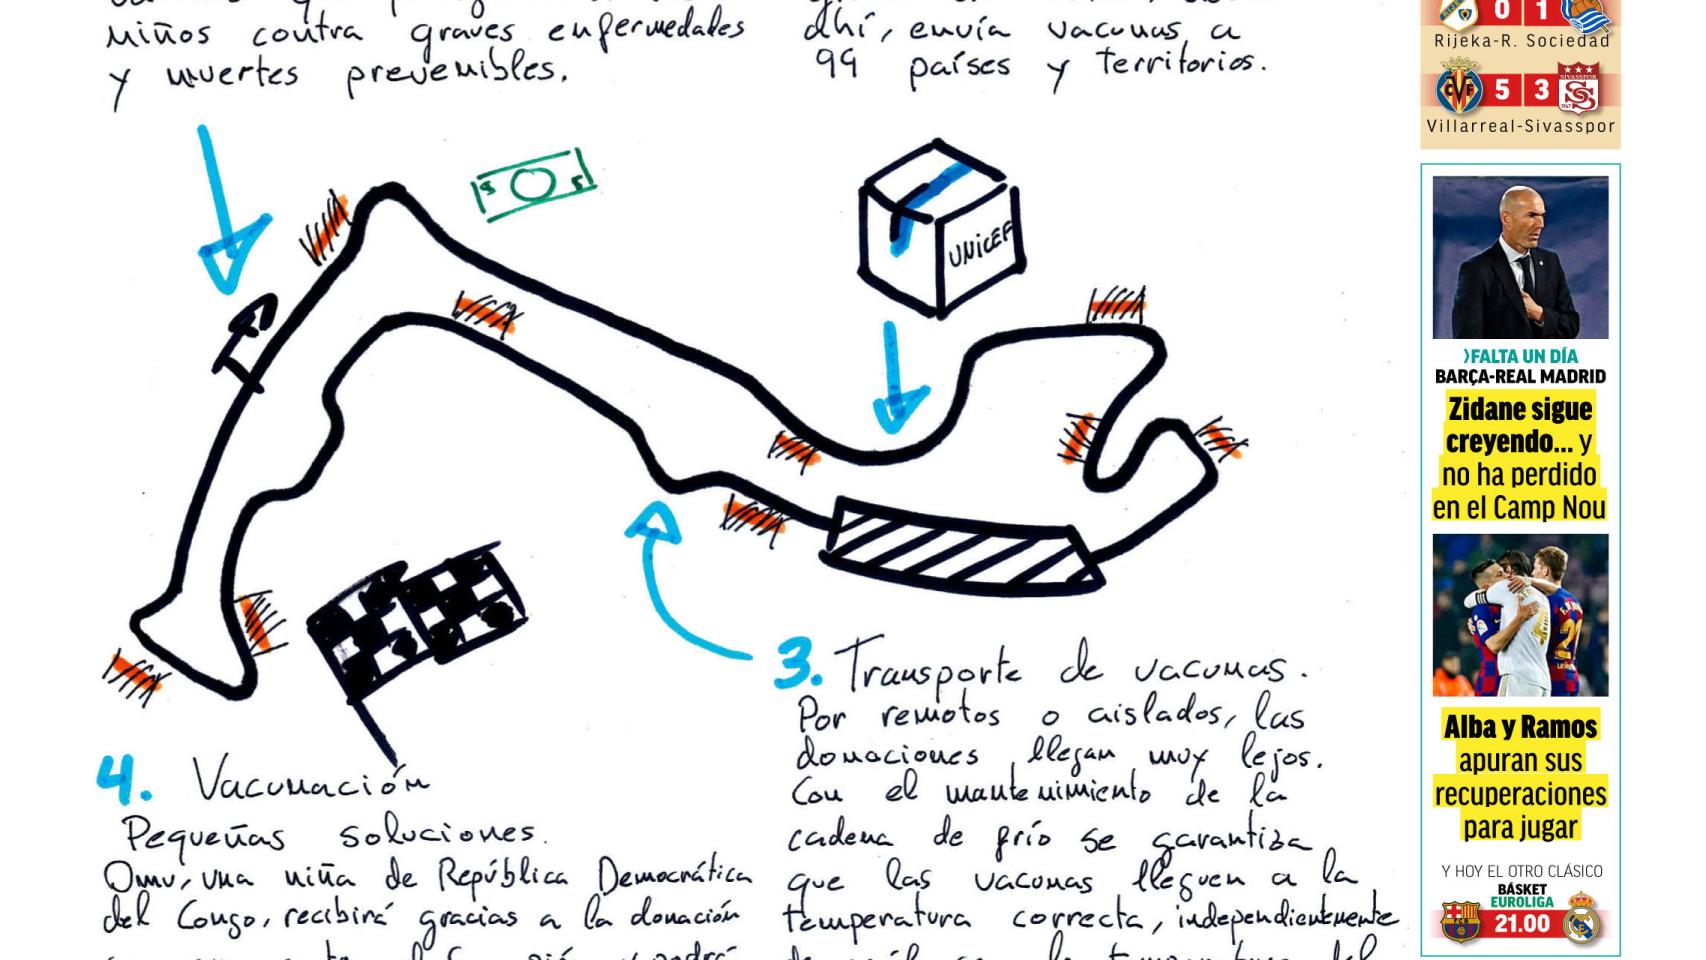 niños contra graves enfermedades
y muertes prevenibles.
ahí, envía vacunas a
99 países y territorios.
UNICEF
3. Transporte de vacunas.
Por remotos o aislados, las
donaciones llegan muy lejos.
Con el mantenimiento de la
cadena de frío se garantiza
que las vacunas lleguen a la
temperatura correcta, independientemente
4. Vacunación
Pequeñas soluciones.
Omu, una niña de República Democrática
del Congo, recibirá gracias a la donación
0 1
Rijeka-R. Sociedad
CVF 5 3 SIVASSPOR
Villarreal-Sivasspor
›FALTA UN DÍA
BARÇA-REAL MADRID
Zidane sigue
creyendo... y
no ha perdido
en el Camp Nou
Alba y Ramos
apuran sus
recuperaciones
para jugar
Y HOY EL OTRO CLÁSICO
BÁSKET
EUROLIGA
21.00